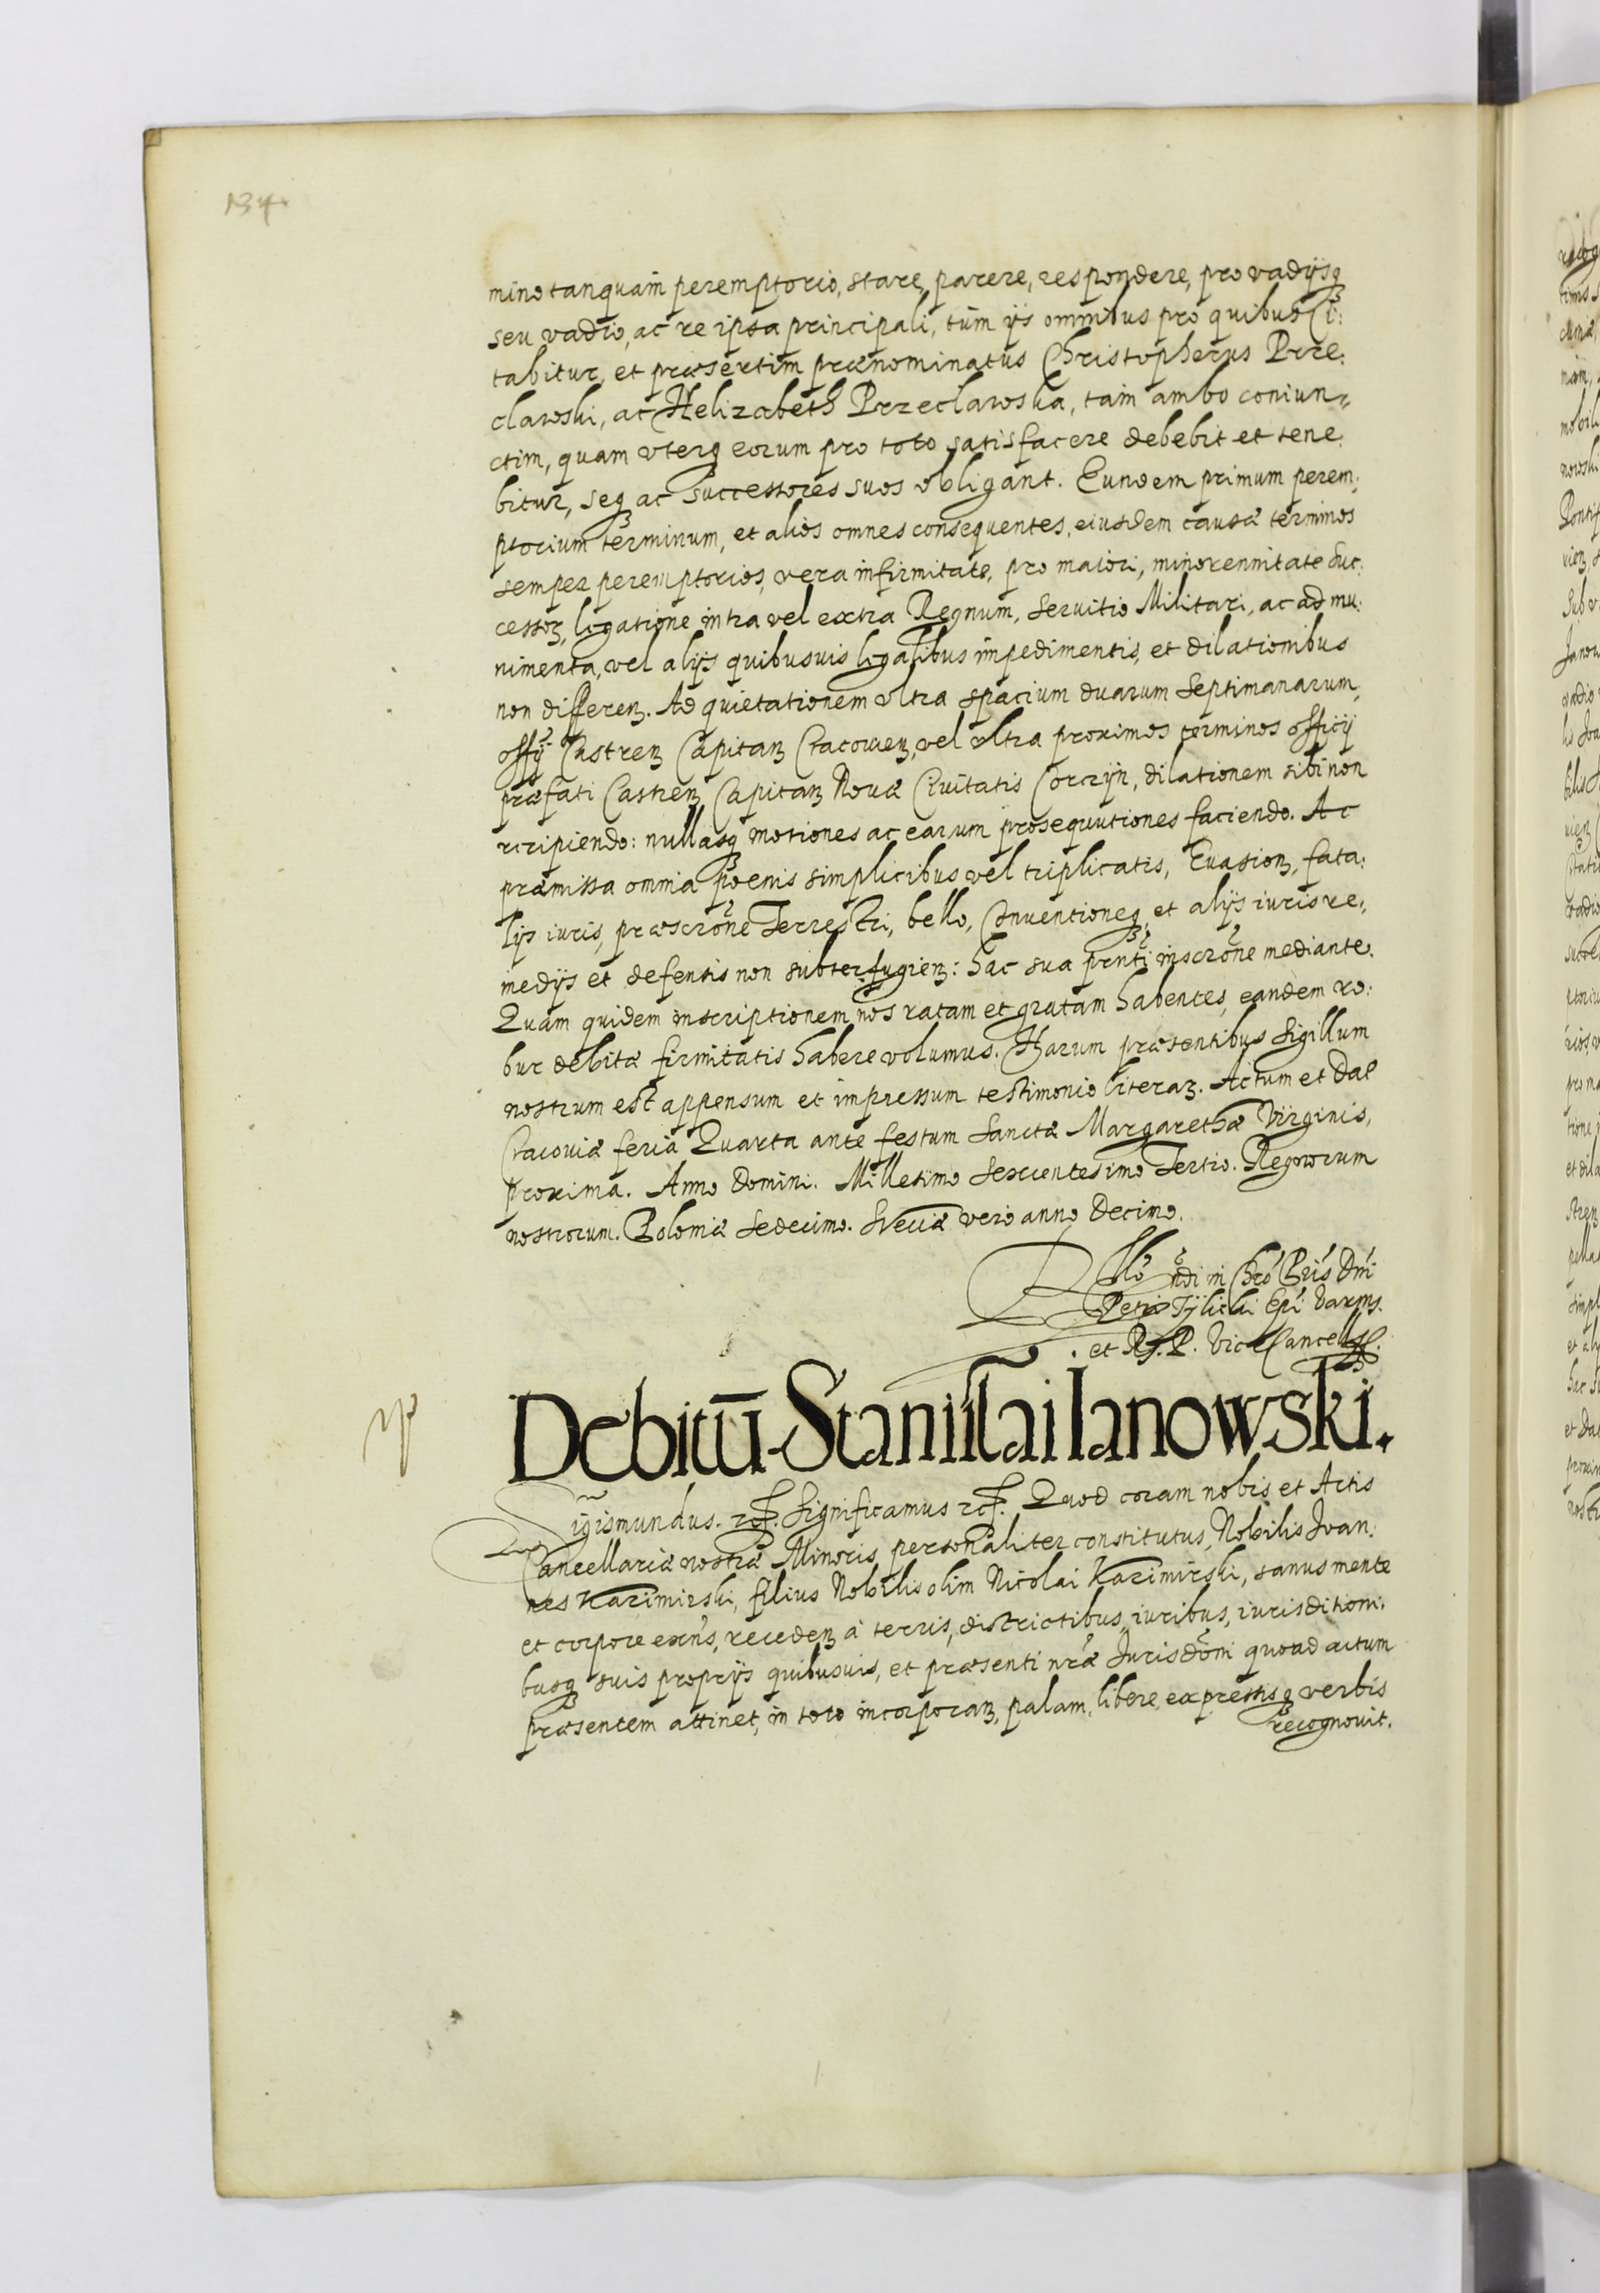 134.
mino tanquam peremptorio, stare, parere, respondere, pro vadijsq3
seu vadio, ac re ipsa principali, tum ijs omnibus pro quibus Ci:
tabitur, et præsertim prænominatus Christopherus Prze:
clawski, ac Helizabeth Przeclawska, tam ambo coniun„
ctim, quam vterq3 eorum pro toto satisfacere debebit et tene:
bitur, seq3 ac successores suos obligant. Eundem primum perem:
ptorium terminum, et alios omnes consequentes, eiusdem causæ terminos
semper peremptorios, vera infirmitate, pro maiori, minorennitate suc:
cessorz, legatione intra vel extra Regnum, Seruitio Militari, ac ad mu:
nimenta, vel alijs quibusuis legalibus impedimentis, et dilationibus
non differenz. Ad quietationem vltra spacium duarum Septimanarum,
offÿ Castrenz Capitanz Cracouienz, vel vltra proximos terminos officij
præfati Castrenz Capitanz Nouæ Ciuitatis Corczijn, dilationem sibi non
recipiendo: nullasq3 motiones ac earum prosequutiones faciendo. Ac
præmissa omnia pœnis simplicibus vel triplicatis, Euasionz, fata:
lijs iuris, præscrõne Terrestri, bello, Conuentioneq3 et alijs iuris re:
medijs et defensis non subterfugienz: hac sua pnti inscrõne mediante.
Quam quidem inscriptionem nos ratam et gratam habentes, eandem ro:
bur debitæ firmitatis habere volumus. Harum præsentibus Sigillum
nostrum est appensum et impressum testimonio literarz. Actum et Dat
Cracouiæ feria Quarta ante festum Sanctæ Margarethæ Virginis,
proxima. Anno Domini. Millesimo Sexcentesimo Tertio. Regnorum
nostrorum. Poloniæ Sedecimo. Sveciæ vero anno Decimo.
ndi in Chrõ Pris Dni
Petri Tÿlicki Epi Varms.
et R. P. Vice Cancell
Debitū Stanislai Ianowski.
Sigismundus. etc. Significamus etc. Quod coram nobis et Actis
Cancellariæ nostræ Minoris, personaliter constitutus, Nobilis Ioan:
nes Kazimirski, filius Nobilis olim Nicolai Kazimirski, sanus mente
et corpore exns, recedenz a terris, districtibus, iuribus, iurisditioni:
busq3 suis proprijs quibusuis, et præsenti nræ Jurisdõni quoad actum
præsentem attinet, in toto incorporanz, palam, libere expressisq3 verbis
recognouit.